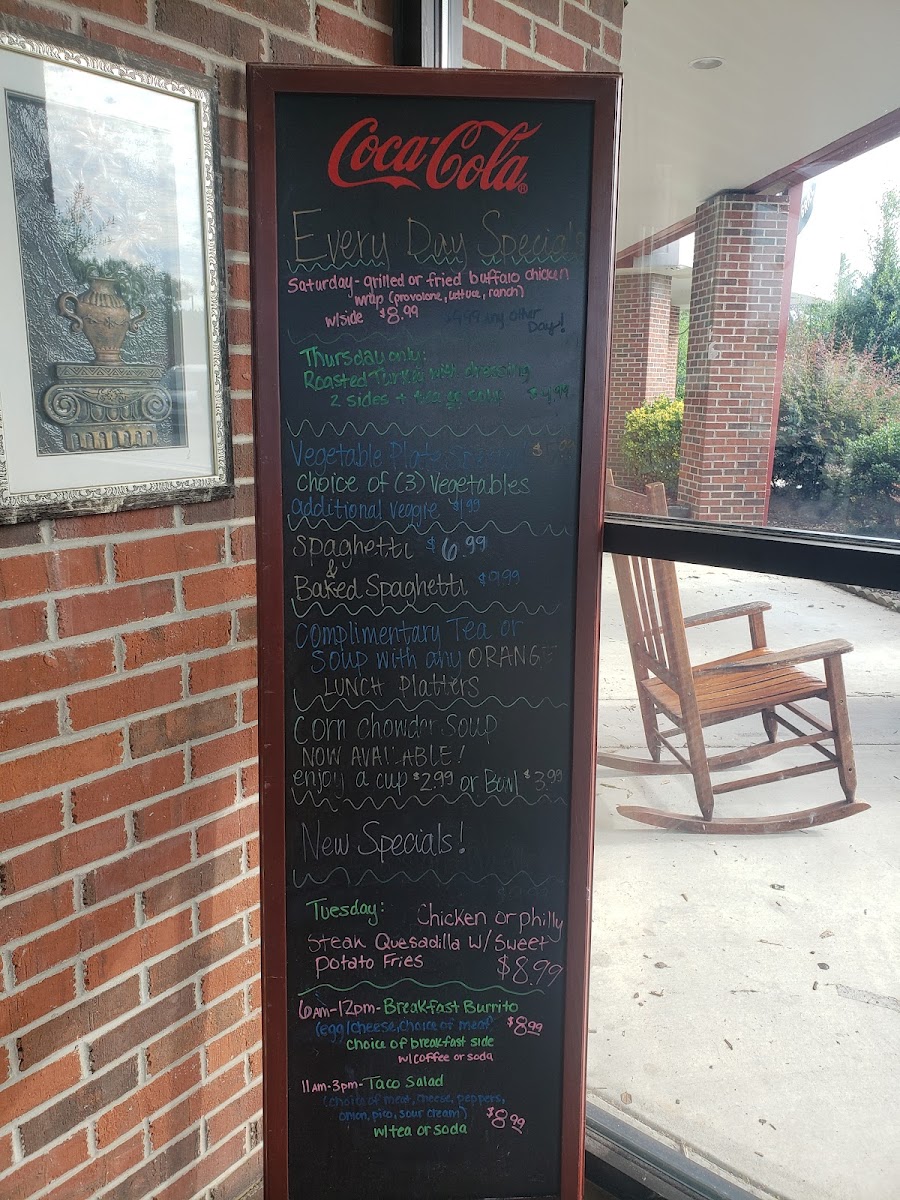 Coca-Cola
Every Day Specials
Saturday - grilled or fried buffalo chicken
wrap (provolone, lettuce, ranch)
w/side $8.99 any other
Day!
Thursday only:
Roasted Turkey with dressing
2 sides +
Vegetable Plate
choice of (3) Vegetables
additional veggie $1.99
Spaghetti $6.99
&
Baked Spaghetti $9.99
Complimentary Tea or
Soup with any ORANGE
LUNCH Platters
Corn Chowder Soup
NOW AVAILABLE!
enjoy a cup $2.99 or Bowl $3.99
New Specials!
Tuesday: Chicken or philly
Steak Quesadilla W/ Sweet
Potato Fries $8.99
6AM-12PM- Breakfast Burrito
(egg/cheese, choice of meat $8.99
choice of breakfast side
w/coffee or soda
11AM-3PM- Taco Salad
(choice of meat, cheese, peppers,
onion, pico, sour cream) $8.99
w/tea or soda